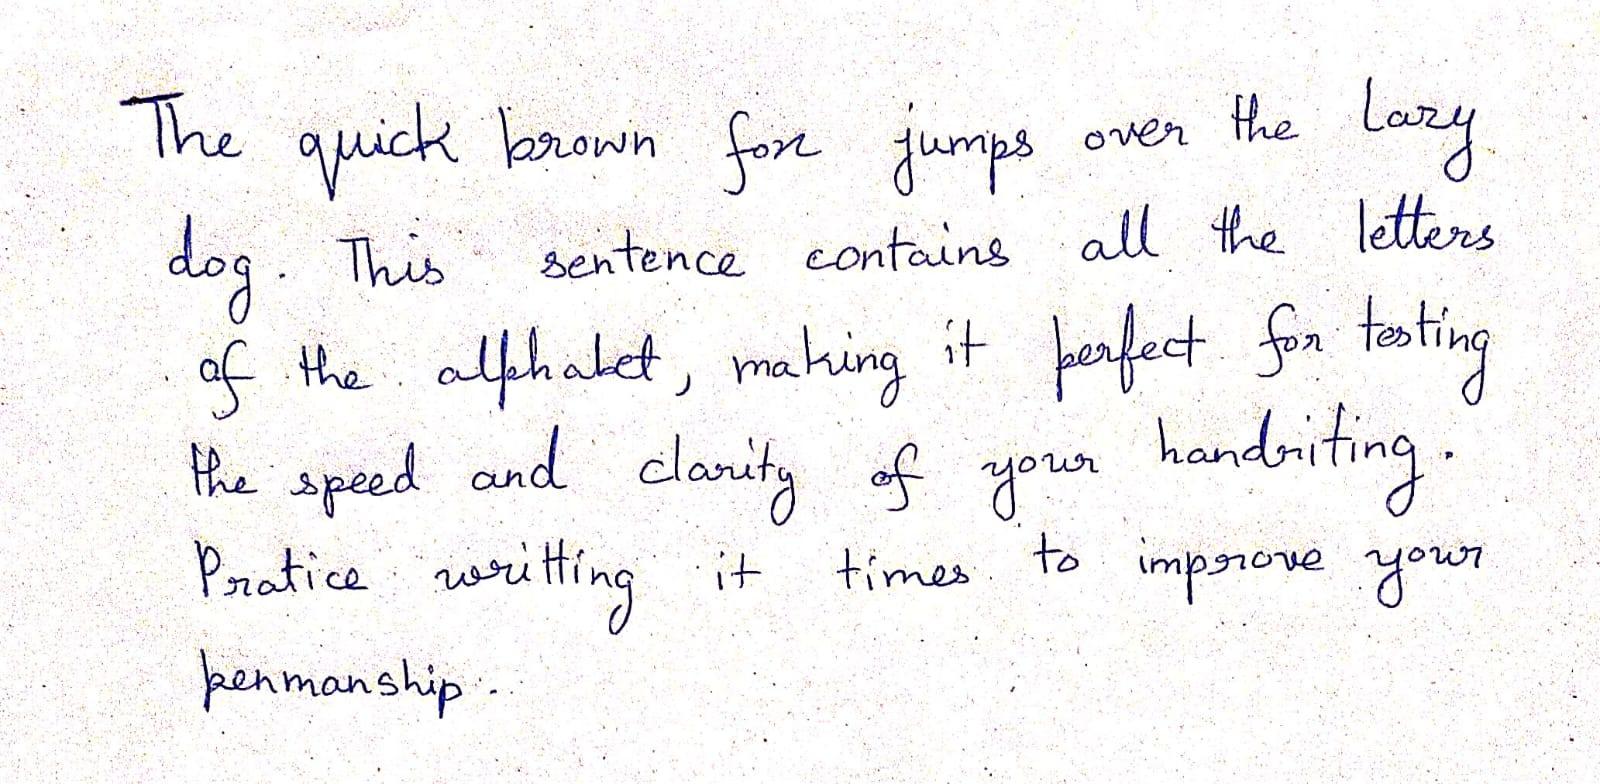 The quick brown fox jumps over the lazy
dog. This sentence contains all the letters
of the alphabet, making it perfect for testing
the speed and clarity of your handriting.
Pratice writting it times to improve your
penmanship.